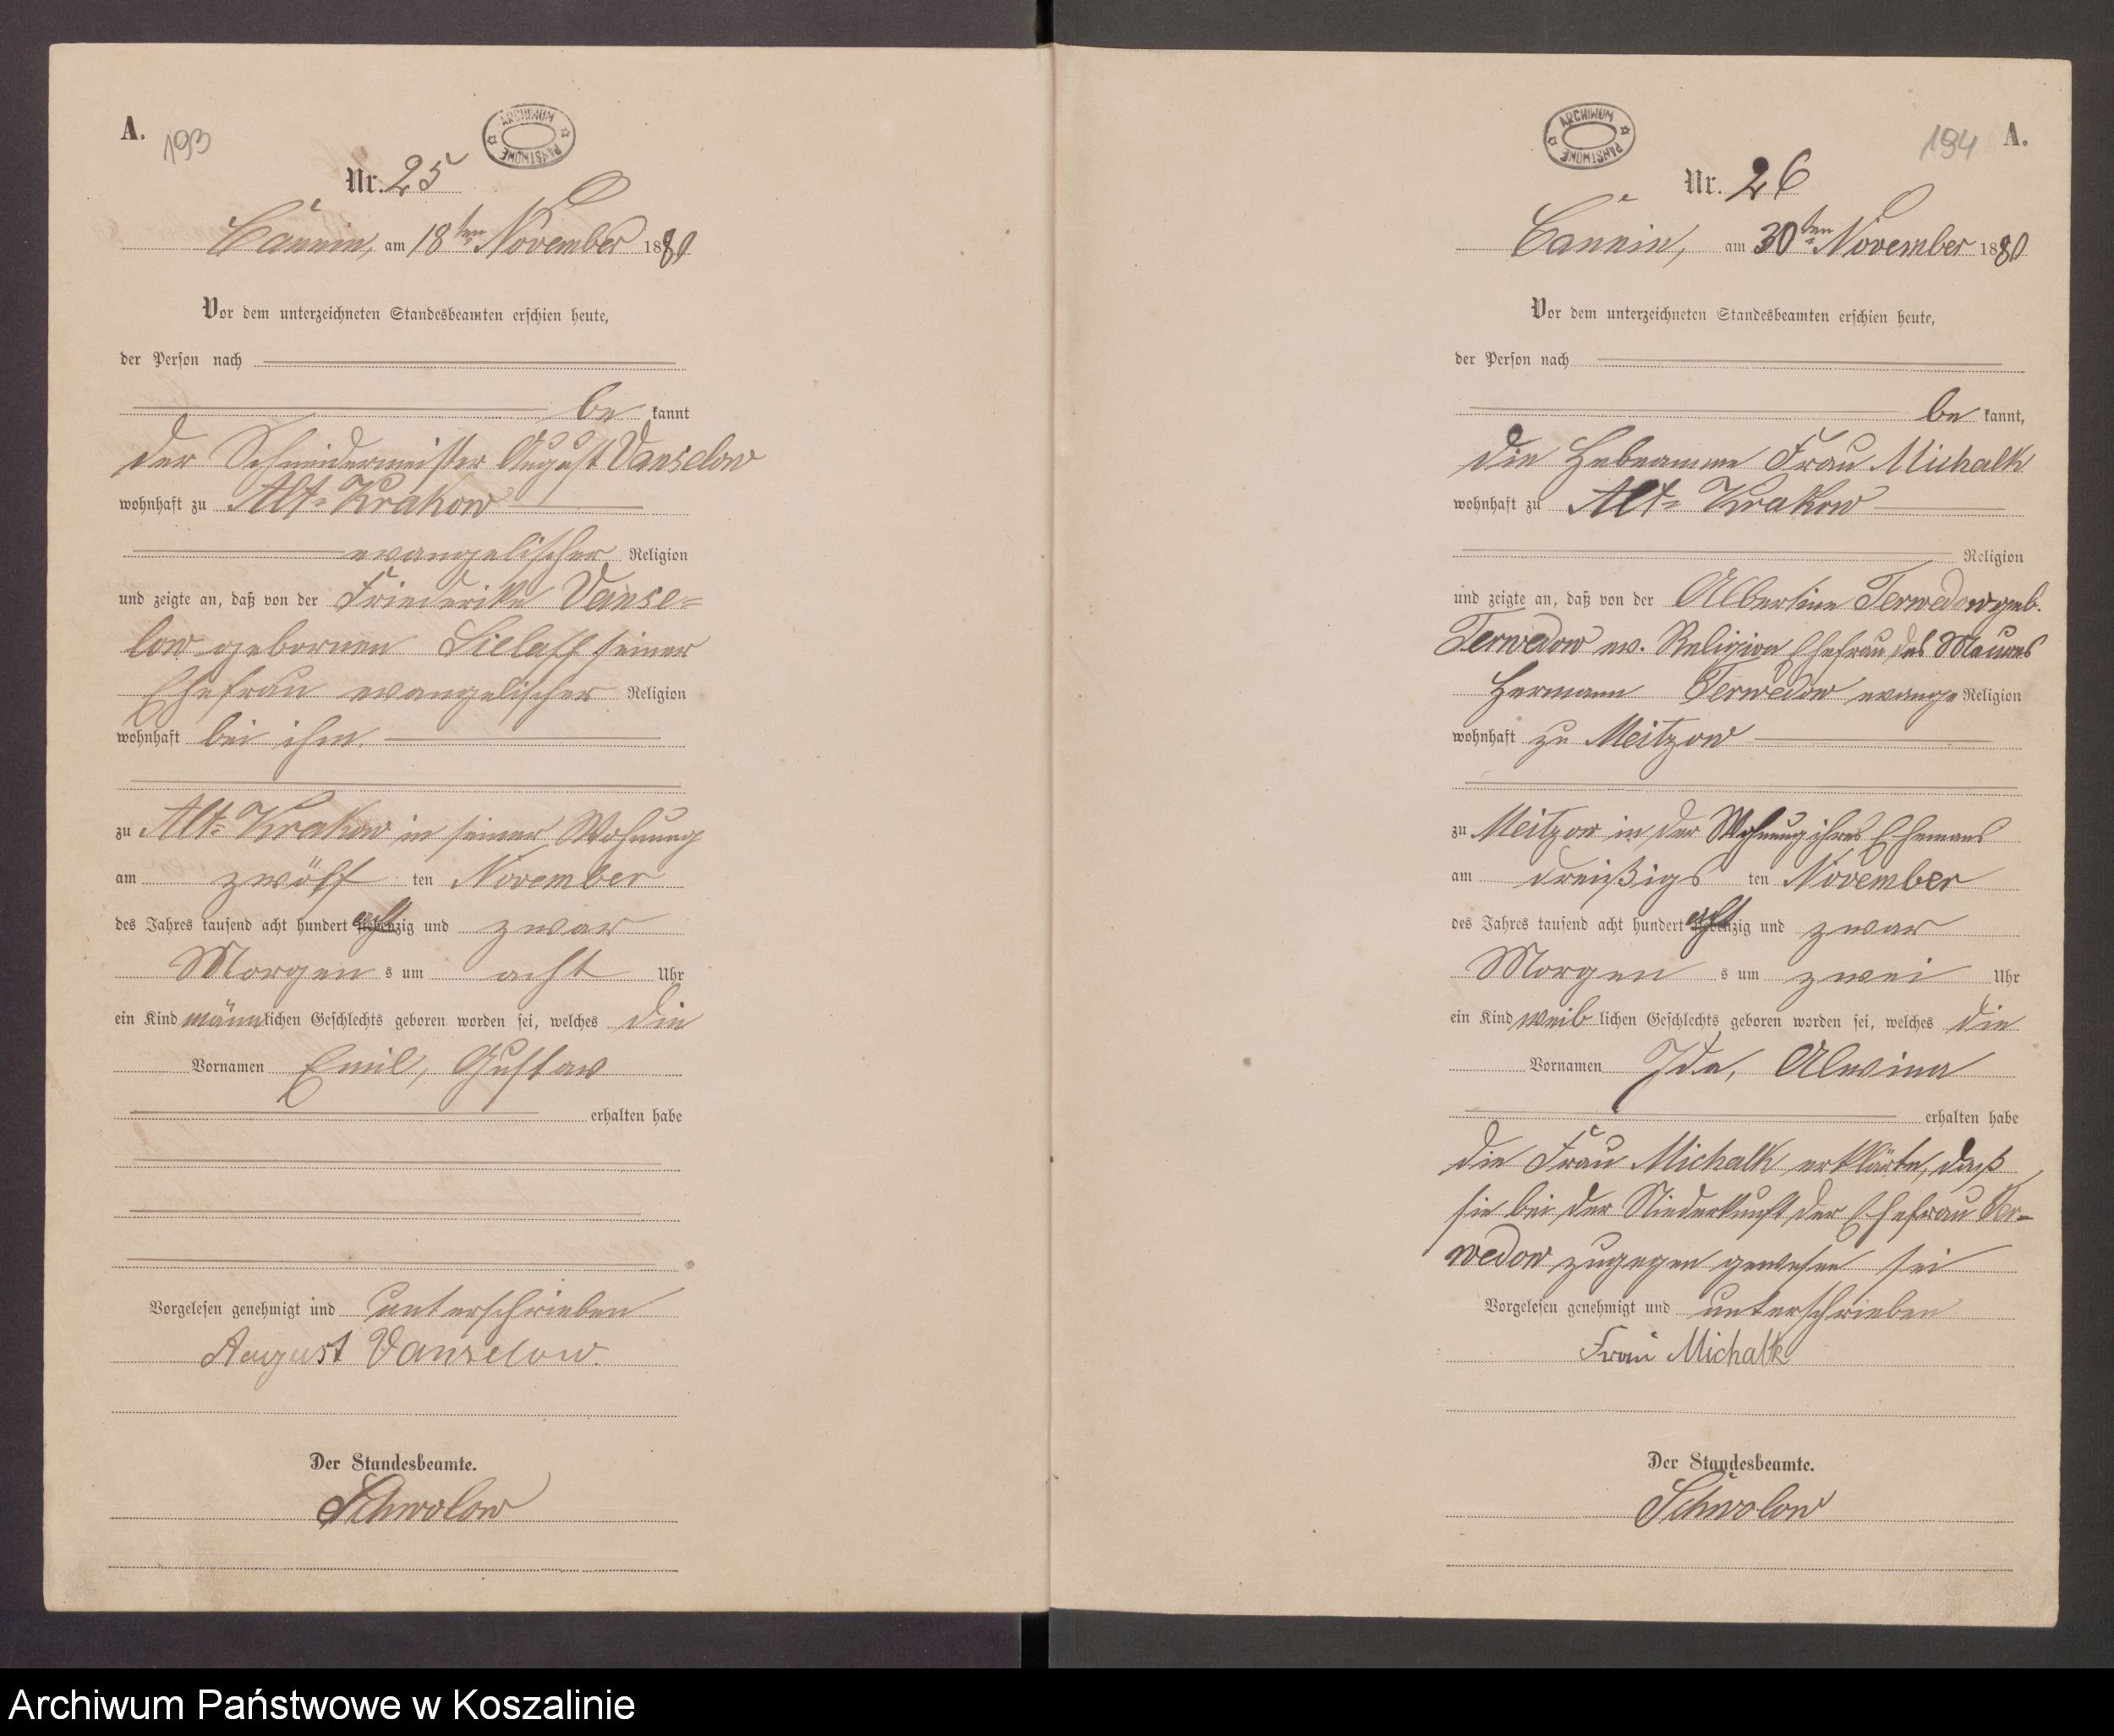 A.
193
ARCHIWUM PAŃSTWOWE
Nr. 25
Cannin, am 18ten November 1880
Vor dem unterzeichneten Standesbeamten erschien heute,
der Person nach
be kannt
der Schneidermeister August Vanselow
wohnhaft zu Alt-Krakow
evangelischer Religion
und zeigte an, daß von der Friederike Vanse-
low gebornen Sielaff seiner
Ehefrau evangelischer Religion
wohnhaft bei ihm.
zu Alt-Krakow in seiner Wohnung
am zwölf ten November
des Jahres tausend acht hundert achtzig und zwar
Morgen s um acht Uhr
ein Kind männlichen Geschlechts geboren worden sei, welches die
Vornamen Emil, Gustav
erhalten habe
Vorgelesen genehmigt und unterschrieben
August Vanselow.
Der Standesbeamte.
Schwolow
A.
194
ARCHIWUM PAŃSTWOWE
Nr. 26
Cannin, am 30ten November 1880
Vor dem unterzeichneten Standesbeamten erschien heute,
der Person nach
be kannt,
die Hebeamme Frau Michalk
wohnhaft zu Alt-Krakow
Religion
und zeigte an, daß von der Albertine Terwedow geb.
Terwedow ev. Religion Ehefrau des Maurers
Hermann Terwedow evange Religion
wohnhaft zu Meitzow
zu Meitzow in der Wohnung ihres Ehemans
am dreißigs ten November
des Jahres tausend acht hundert achtzig und zwar
Morgen s um zwei Uhr
ein Kind weib lichen Geschlechts geboren worden sei, welches die
Vornamen Ida, Alwine
erhalten habe
die Frau Michalk erklärte, daß
sie bei der Niederkunft der Ehefrau Ter-
wedow zugegen gewesen sei
Vorgelesen genehmigt und unterschrieben
Frau Michalk
Der Standesbeamte.
Schwolow
Archiwum Państwowe w Koszalinie